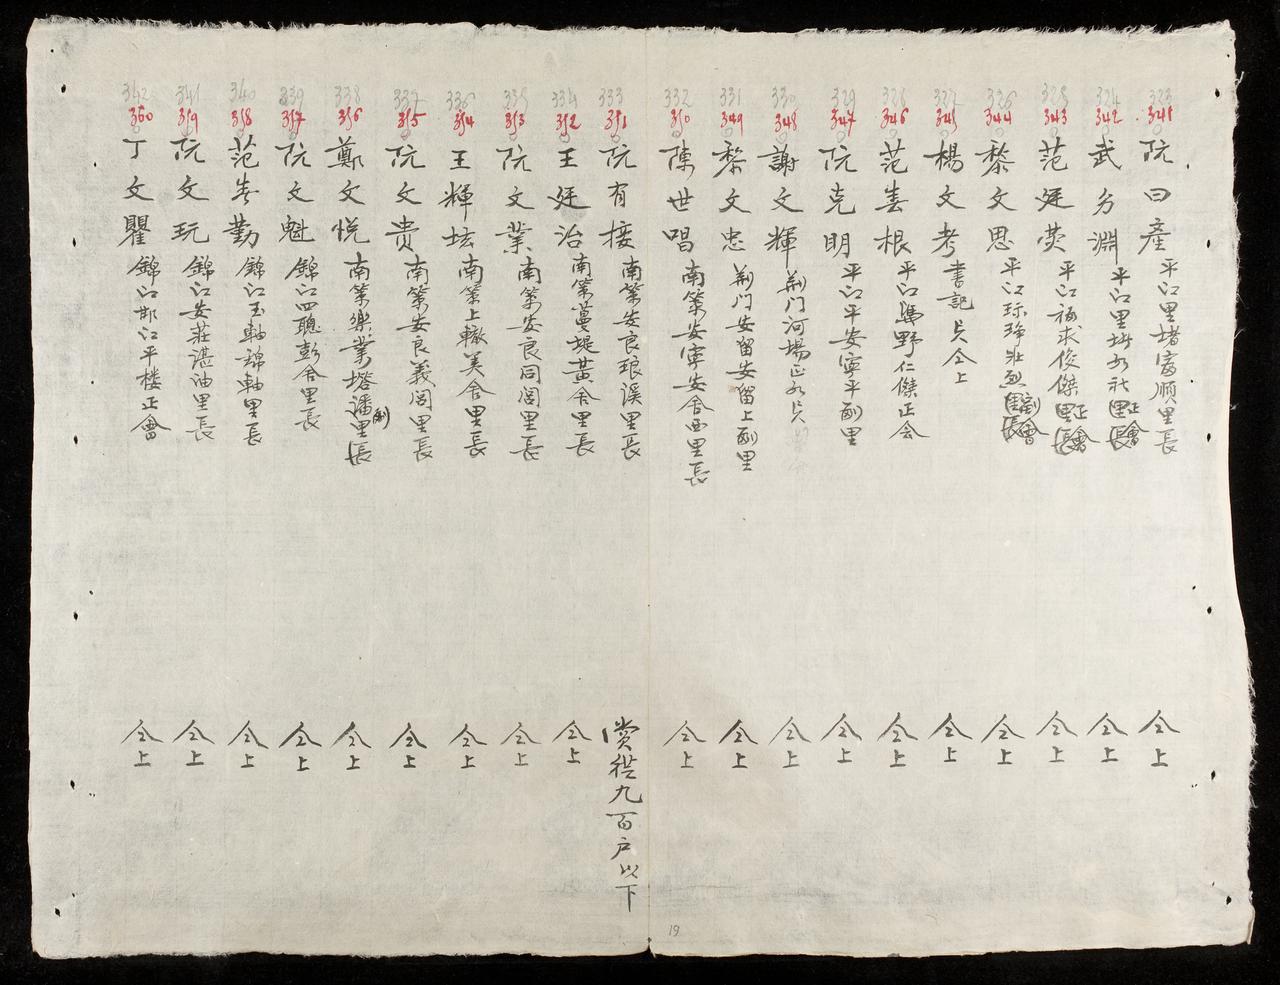 323
341
阮曰產 平江里堵富順里長 仝上
324
342
武 淵 平江里堵 社里長 正會 仝上
325
343
范廷荧 平江 求俊傑里長 正會 仝上
326
344
黎文思 平江琼琤壯烈里長 副會 仝上
327
345
楊文考 書記 仝上 仝上
328
346
范春根 平江 野仁傑正会 仝上
329
347
阮克明 平江平安寧平副里 仝上
330
348
謝文輝 荆门河場正 仝上
331
349
黎文忠 荆门安留安留上副里 仝上
332
350
陳世唱 南策安寧安舍西里長 仝上
333
351
阮有接 南策安良琅溪里長 賞 九百户以下
334
352
王廷治 南策蔓堤黃舍里長 仝上
335
353
阮文業 南策安良同閭里長 仝上
336
354
王輝坛 南策上轍美舍里長 仝上
337
355
阮文贵 南策安良義閭里長 仝上
338
356
鄭文悦 南策樂業塔潘副里長 仝上
339
357
阮文魁 錦江四聰彭舍里長 仝上
340
358
范春勤 錦江玉軸錦軸里長 仝上
341
359
阮文玩 錦江安莊湛油里長 仝上
342
360
丁文瞿 錦江邯江平楼正會 仝上
19